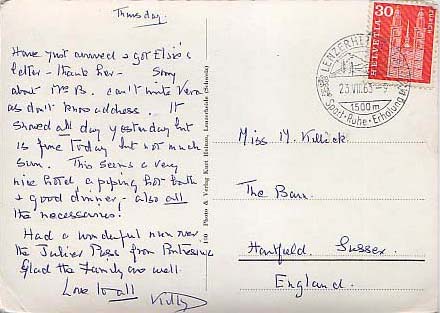 Thursday.
Have just arrived & got Elsie's
letter - thank her - Sorry
about Mrs B. can't write Vera
as don't know address. It
snowed all day yesterday but
is fine today but not much
sun. This seems a very
nice hotel, a piping hot bath
& good dinner, - also all
the necessaries!
Had a wonderful run over
the Julier Pass from Pontresina
Glad the Family are well.
Love to all
Photo & Verlag Kurt Lenzerheide (Schweiz)
30
HELVETIA
LENZERHEIDE
23.VII.63
1500 m
Sport · Ruhe · Erholung
Miss M. Killick
The Barn
Hartfield Sussex.
England.